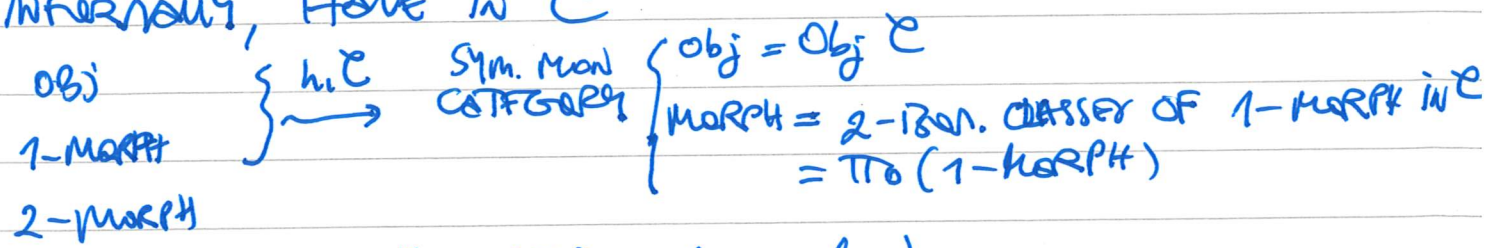 INTERNALLY, HAVE IN C
OBJ
1-MORPH
2-MORPH
h₁C
SYM. MON
CATEGORY
Obj = Obj C
MORPH = 2-ISOM. CLASSES OF 1-MORPH IN C
= π₀ (1-MORPH)